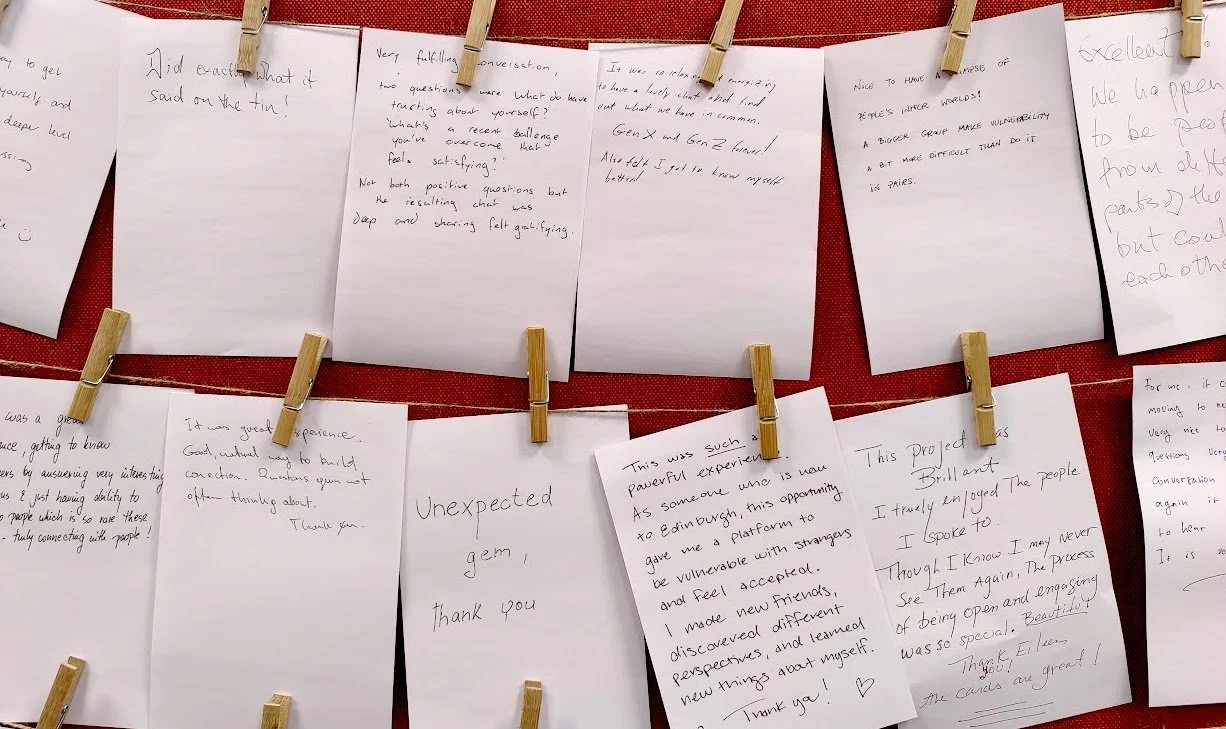 ay to get
yourself and
deeper level
ssing
Did exactly what it
said on the tin!
Very fulfilling conversation,
two questions were what do have
trusting about yourself?
'What's a recent ballenge
you've overcome that
feels satisfying?'
Not both positive questions but
the resulting chat was
deep and sharing felt gratifying.
It was so relaxing and energizing
to have a lovely chat and find
out what we have in common.
Gen X and Gen Z forever!
Also felt I got to know myself
better!
NICE TO HAVE A GLIMPSE OF
PEOPLE'S INNER WORLDS!
A BIGGER GROUP MAKE VULNERABILITY
A BIT MORE DIFFICULT THAN DO IT
IN PAIRS.
Excellent
We happen
to be peo
from diffe
parts of the
but coul
each othe
was a great
nce, getting to know
ers by answering very interesting
ns & just having ability to
o people which is so rare these
- truly connecting with people!
It was great experience.
Good, natural way to build
conection. Questions you not
often thinking about.
Thank you.
Unexpected
gem,
thank you
This was such a
powerful experience.
As someone who is new
to Edinburgh, this opportunity
gave me a platform to
be vulnerable with strangers
and feel accepted.
I made new friends,
discovered different
perspectives, and learned
new things about myself.
Thank ya! ♡
This Project was
Brillant
I truely enjoyed The people
I spoke to.
Though I Know I may Never
See Them Again, The Process
of being open and engaging
was so special. Beautiful!
Thank Eileen
you!
the cards are great!
For me, it c
moving to ne
very nice to
questions very
conversation
again it
to hear
It is